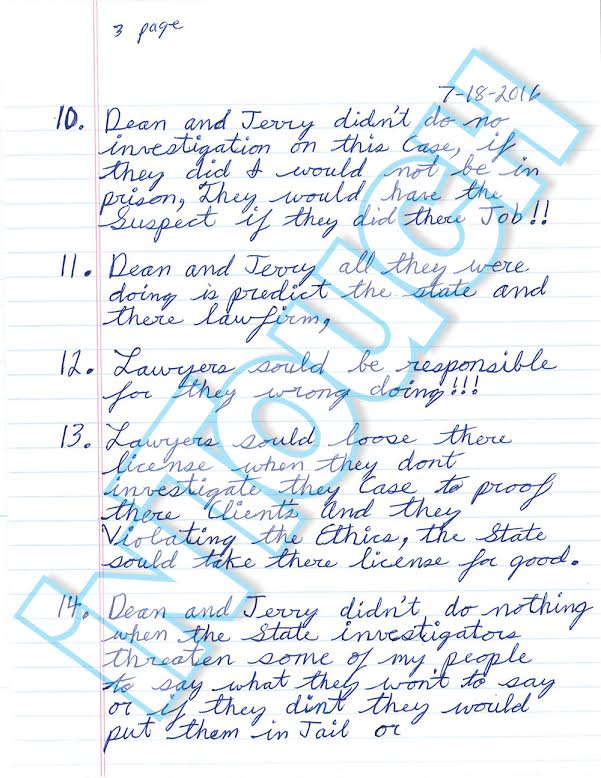 3 page
7-18-2016
10. Dean and Jerry didn't do no
investigation on this Case, if
they did I would not be in
prison, They would have the
Suspect if they did there Job!!
11. Dean and Jerry all they were
doing is predict the state and
there lawfirm,
12. Lawyers sould be responsible
for they wrong doing!!!
13. Lawyers sould loose there
license when they dont
investigate they Case to proof
there Client's And they
Violating the Ethics, the State
sould take there license for good.
14. Dean and Jerry didn't do nothing
when the State investigators
threaten some of my people
to say what they won't to say
or if they dint they would
put them in Jail or
INTOUCH